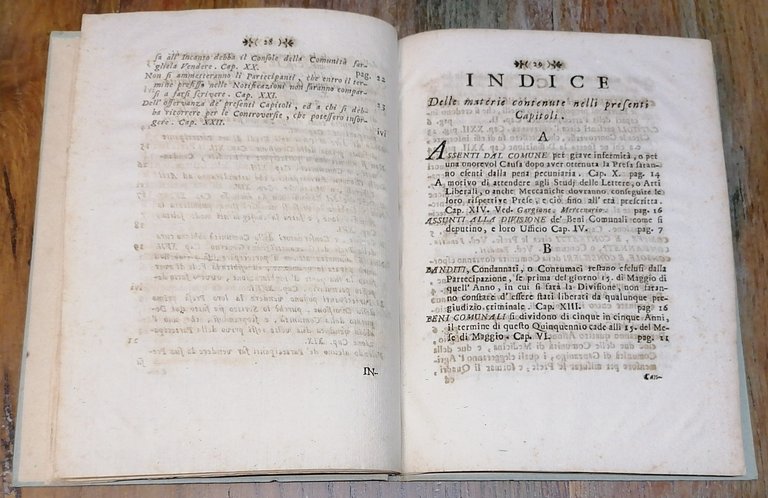 ( 28 )
sa all' Incanto debba il Console della Comunità far-
gliela Vendere. Cap. XX. pag. 22
Non si ammetteranno li Partecipanti, che entro il ter-
mine prefisso nelle Notificazioni non saranno compar-
si a farsi scrivere. Cap. XXI. 23
Dell' osservanza de' presenti Capitoli, ed a chi si deb-
ba ricorrere per le Controversie, che potessero insor-
gere. Cap. XXII. ivi
IN-
( 29 )
INDICE
Delle materie contenute nelli presenti
Capitoli.
A
ASSENTI DAL COMUNE per grave infermità, o per
una onorevol Causa dopo aver ottenuta la Presa saran-
no esenti dalla pena pecuniaria. Cap. X. pag. 14
A motivo di attendere agli Studj delle Lettere, o Arti
Liberali, o anche Meccaniche dovranno conseguire le
loro rispettive Prese, e ciò fino all' età prescritta.
Cap. XIV. Ved. Garzone. Mercenario. pag. 16
ASSUNTI ALLA DIVISIONE de' Beni Comunali come si
deputino, e loro Ufficio Cap. IV. pag. 7
B
BANDITI, Condannati, o Contumaci restano esclusi dalla
Partecipazione, se prima del giorno 15. di Maggio di
quell' Anno, in cui si farà la Divisione, non faran-
no constare d' essere stati liberati da qualunque pre-
giudizio criminale. Cap. XIII. pag 16
BENI COMUNALI si dividono di cinque in cinque Anni,
il termine di questo Quinquennio cade alli 15. del Me-
se di Maggio. Cap. VI. pag. 11
Can-